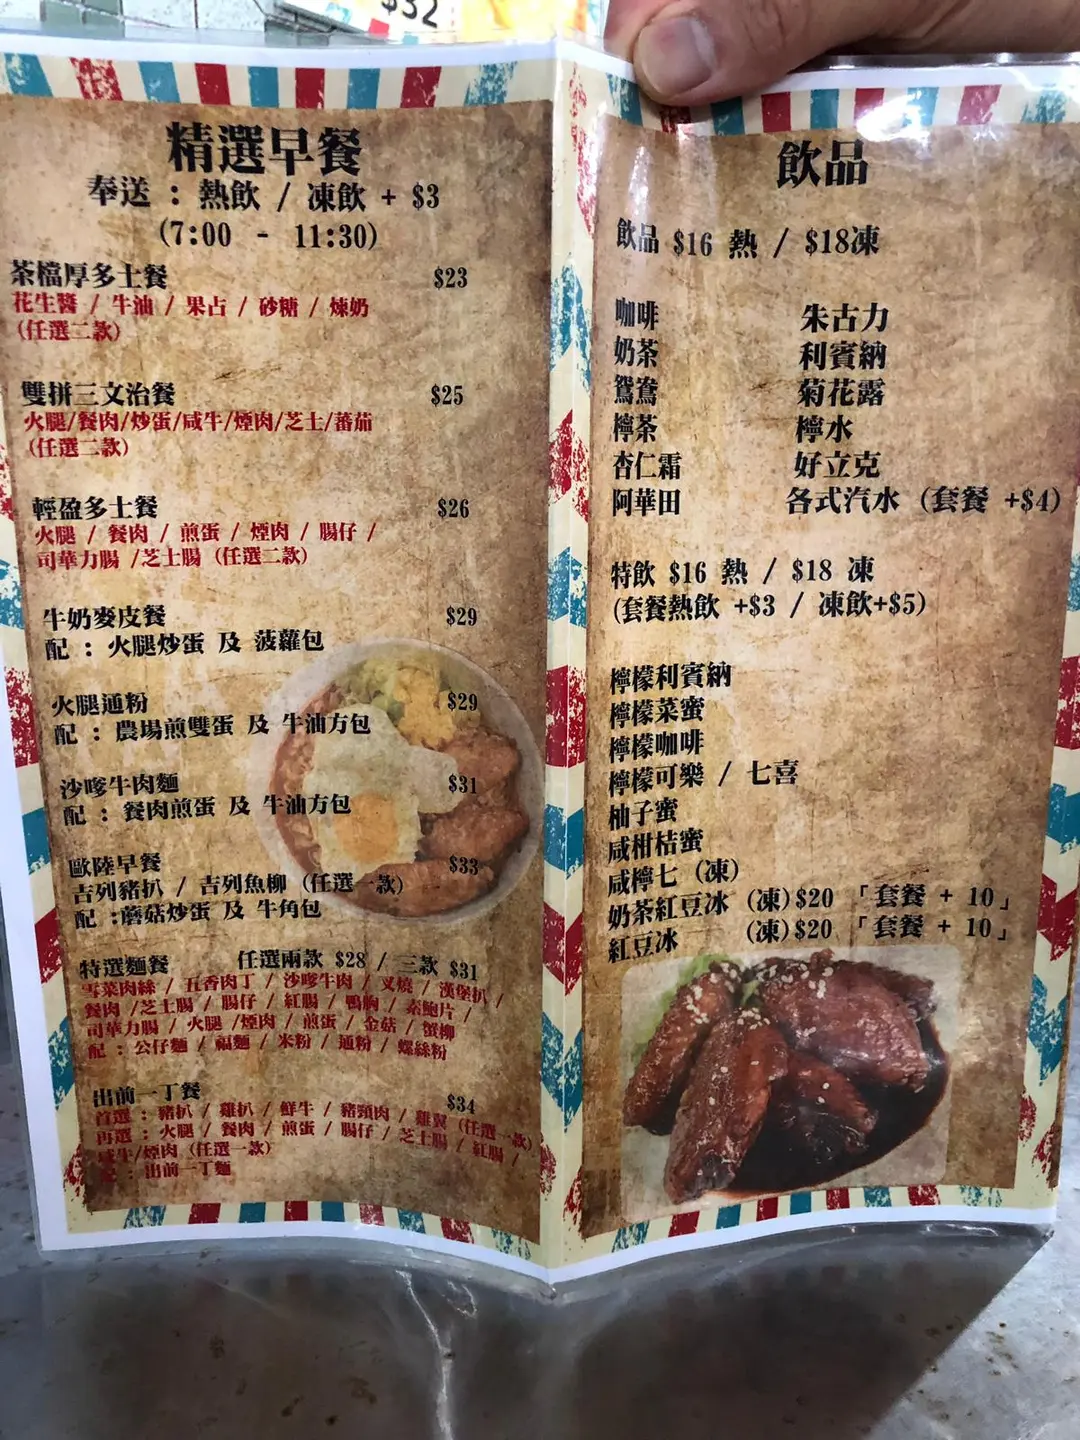 $32
精選早餐
奉送 : 熱飲 / 凍飲 + $3
(7:00 - 11:30)
茶檔厚多士餐 $23
花生醬 / 牛油 / 果占 / 砂糖 / 煉奶
(任選二款)
雙拼三文治餐 $25
火腿/餐肉/炒蛋/咸牛/煙肉/芝士/蕃茄
(任選二款)
輕盈多士餐 $26
火腿 / 餐肉 / 煎蛋 / 煙肉 / 腸仔 /
司華力腸 /芝士腸 (任選二款)
牛奶麥皮餐 $29
配 : 火腿炒蛋 及 菠蘿包
火腿通粉 $29
配 : 農場煎雙蛋 及 牛油方包
沙嗲牛肉麵 $31
配 : 餐肉煎蛋 及 牛油方包
歐陸早餐 $33
吉列豬扒 / 吉列魚柳 (任選一款)
配 :蘑菇炒蛋 及 牛角包
特選麵餐 任選兩款 $28 / 三款 $31
雪菜肉絲 / 五香肉丁 / 沙嗲牛肉 / 叉燒 / 漢堡扒 /
餐肉 /芝士腸 / 腸仔 / 紅腸 / 鴨胸 / 素鮑片 /
司華力腸 / 火腿 /煙肉 / 煎蛋 / 金菇 / 蟹柳
配 : 公仔麵 / 福麵 / 米粉 / 通粉 / 螺絲粉
出前一丁餐 $34
首選 : 豬扒 / 雞扒 / 鮮牛 / 豬頸肉 / 雞翼 (任選一款)
再選 : 火腿 / 餐肉 / 煎蛋 / 腸仔 / 芝士腸 / 紅腸 /
咸牛/煙肉 (任選一款)
配 : 出前一丁麵
飲品
飲品 $16 熱 / $18凍
咖啡 朱古力
奶茶 利賓納
鴛鴦 菊花露
檸茶 檸水
杏仁霜 好立克
阿華田 各式汽水 (套餐 +$4)
特飲 $16 熱 / $18 凍
(套餐熱飲 +$3 / 凍飲+$5)
檸檬利賓納
檸檬菜蜜
檸檬咖啡
檸檬可樂 / 七喜
柚子蜜
咸柑桔蜜
咸檸七 (凍)
奶茶紅豆冰 (凍)$20 「套餐 + 10」
紅豆冰 (凍)$20 「套餐 + 10」